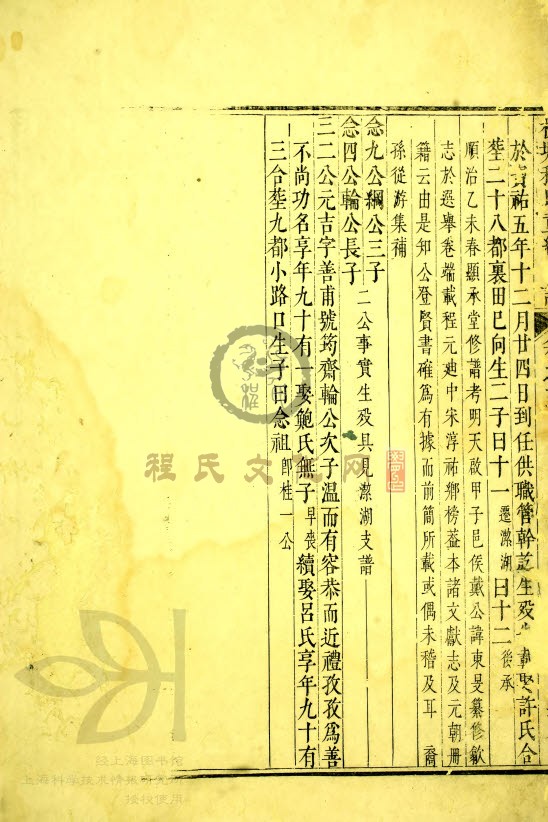 於寳祐五年十二月廿四日到任供職管幹 生殁 娶許氏合
塟二十八都裏田巳向生二子曰十一遷漯湖曰十二後承
順治乙未春顯承堂修譜考明天啟甲子邑侯戴公諱東旻纂修歙
志於選舉卷端載程元廸中宋淳祐鄉榜葢本諸文獻志及元朝册
籍云由是知公登賢書確爲有據而前簡所載或偶未稽及耳 裔
孫從游集補
念九公綱公三子
念四公輪公長子 二公事實生殁具見漯湖支譜
三二公元吉字善甫號筠齋輪公次子温而有容恭而近禮孜孜爲善
不尚功名享年九十有一娶鮑氏無子早喪續娶呂氏享年九十有
三合塟九都小路口生子曰念祖卽桂一公
程氏文化网
经上海图书馆
上海科学技术情报研究所
授权使用